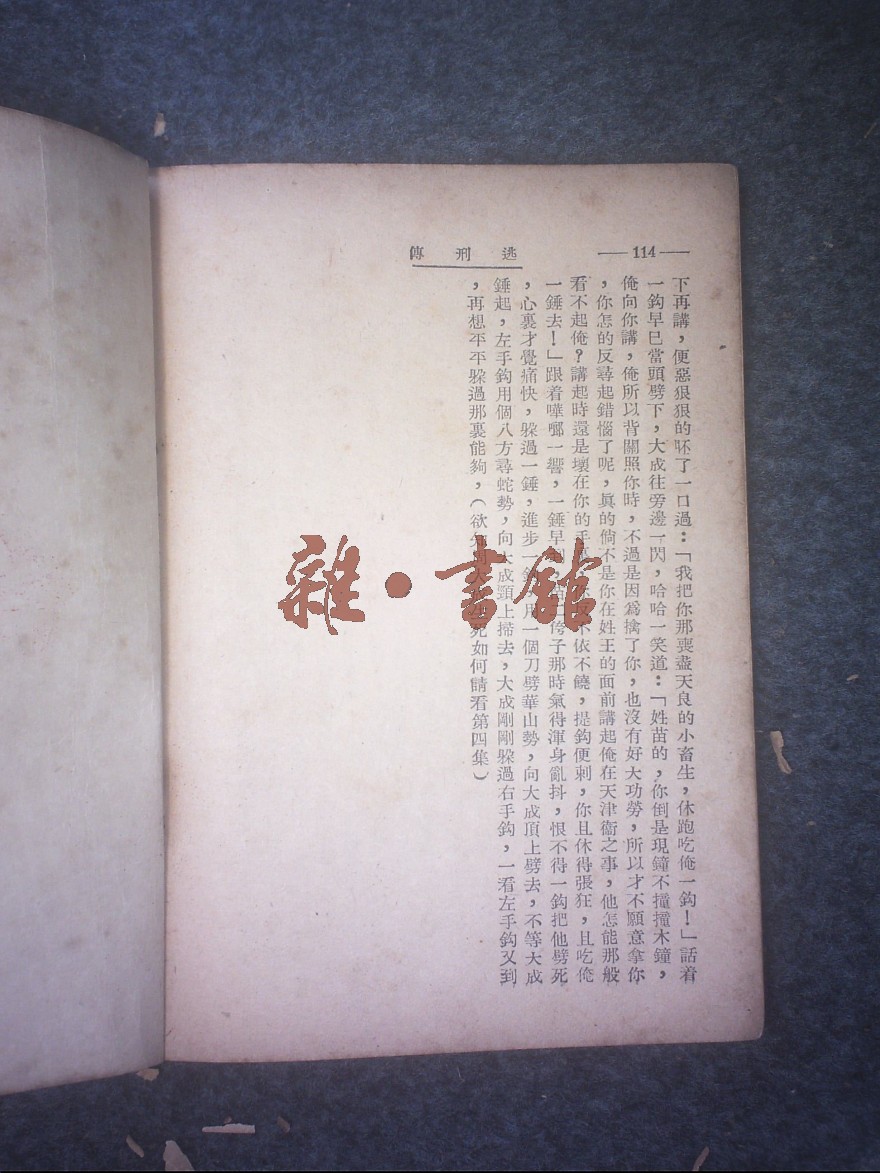 —114—
逃刑傳
下再講，便惡狠狠的呸了一口過：「我把你那喪盡天良的小畜生，休跑吃俺一鈎！」話着
一鈎早巳當頭劈下，大成往旁邊一閃，哈哈一笑道：「姓苗的，你倒是現鐘不撞撞木鐘，
俺向你講，俺所以背關照你時，不過是因爲擒了你，也沒有好大功勞，所以才不願意拿你
，你怎的反尋起錯惱了呢，眞的倘不是你在姓王的面前講起俺在天津衞之事，他怎能那般
看不起俺？講起時還是壞在你的手 不依不饒，提鈎便刺，你且休得張狂，且吃俺
一錘去！」跟着嘩啷一響，一錘早到 侉子那時氣得渾身亂抖，恨不得一鈎把他劈死
，心裏才覺痛快，躲過一錘，進步一鈎 用一個刀劈華山勢，向大成頂上劈去，不等大成
錘起，左手鈎用個八方尋蛇勢，向大成頸上掃去，大成剛剛躲過右手鈎，一看左手鈎又到
，再想平平躲過那裏能夠，（欲知 大 死如何請看第四集）
雜·書館